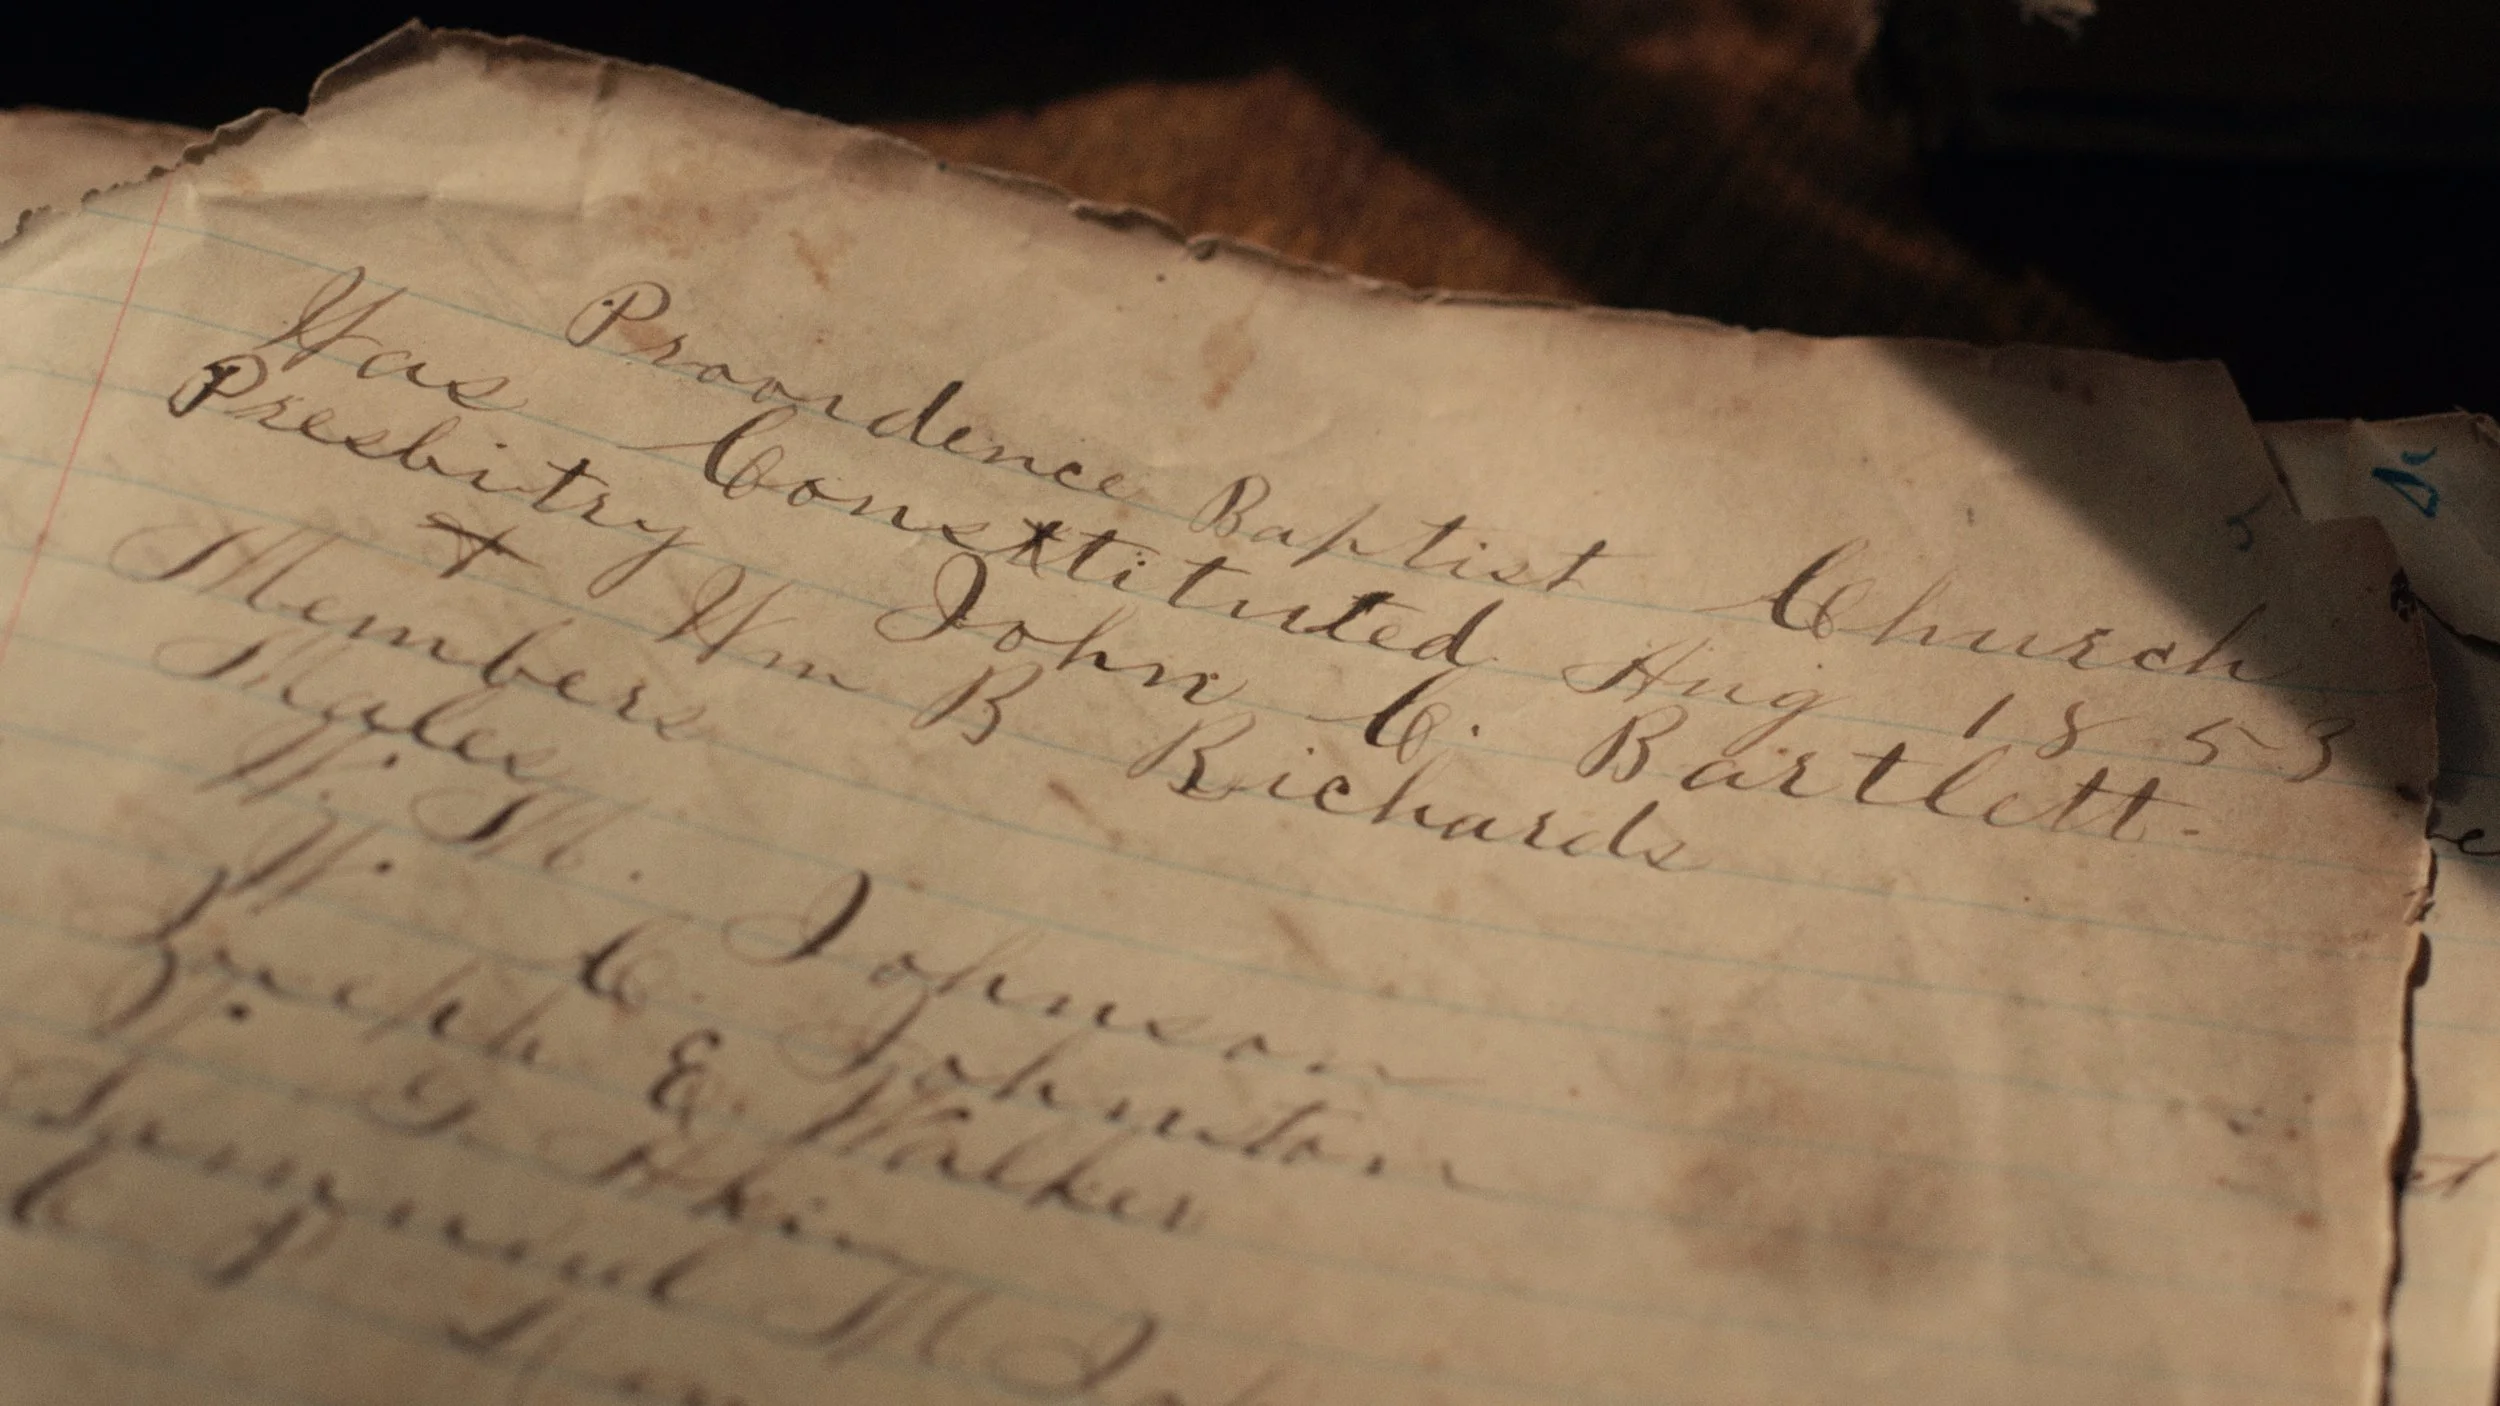 Providence Baptist Church
Was Constituted Aug 1853
Presbitry John C. Bartlett.
+ Wm B Richards
Members
Males
W. M. Johnson
W. C. Johnston
Joseph E. Walker
W. G.
Samuel M